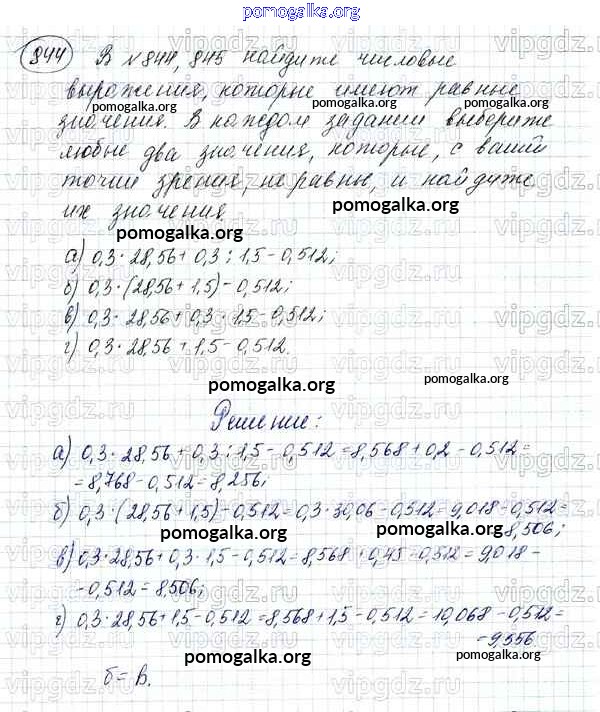 pomogalka.org
844 В №844, 845 найдите числовые
выражения, которые имеют равные
pomogalka.org pomogalka.org
значения. В каждом задании выберите
любые два значения, которые, с вашей
точки зрения, не равны, и найдите
их значения.
pomogalka.org
а) 0,3 · 28,56 + 0,3 : 1,5 - 0,512;
б) 0,3 · (28,56 + 1,5) - 0,512;
в) 0,3 · 28,56 + 0,3 · 1,5 - 0,512;
г) 0,3 · 28,56 + 1,5 - 0,512.
pomogalka.org pomogalka.org
Решение:
а) 0,3 · 28,56 + 0,3 : 1,5 - 0,512 = 8,568 + 0,2 - 0,512 =
= 8,768 - 0,512 = 8,256;
pomogalka.org
б) 0,3 · (28,56 + 1,5) - 0,512 = 0,3 · 30,06 - 0,512 = 9,018 - 0,512 =
pomogalka.org = 8,506;
в) 0,3 · 28,56 + 0,3 · 1,5 - 0,512 = 8,568 + 0,45 - 0,512 = 9,018 -
- 0,512 = 8,506;
pomogalka.org
г) 0,3 · 28,56 + 1,5 - 0,512 = 8,568 + 1,5 - 0,512 = 10,068 - 0,512 =
= 9,556
pomogalka.org pomogalka.org
б = в.
vipgdz.ru